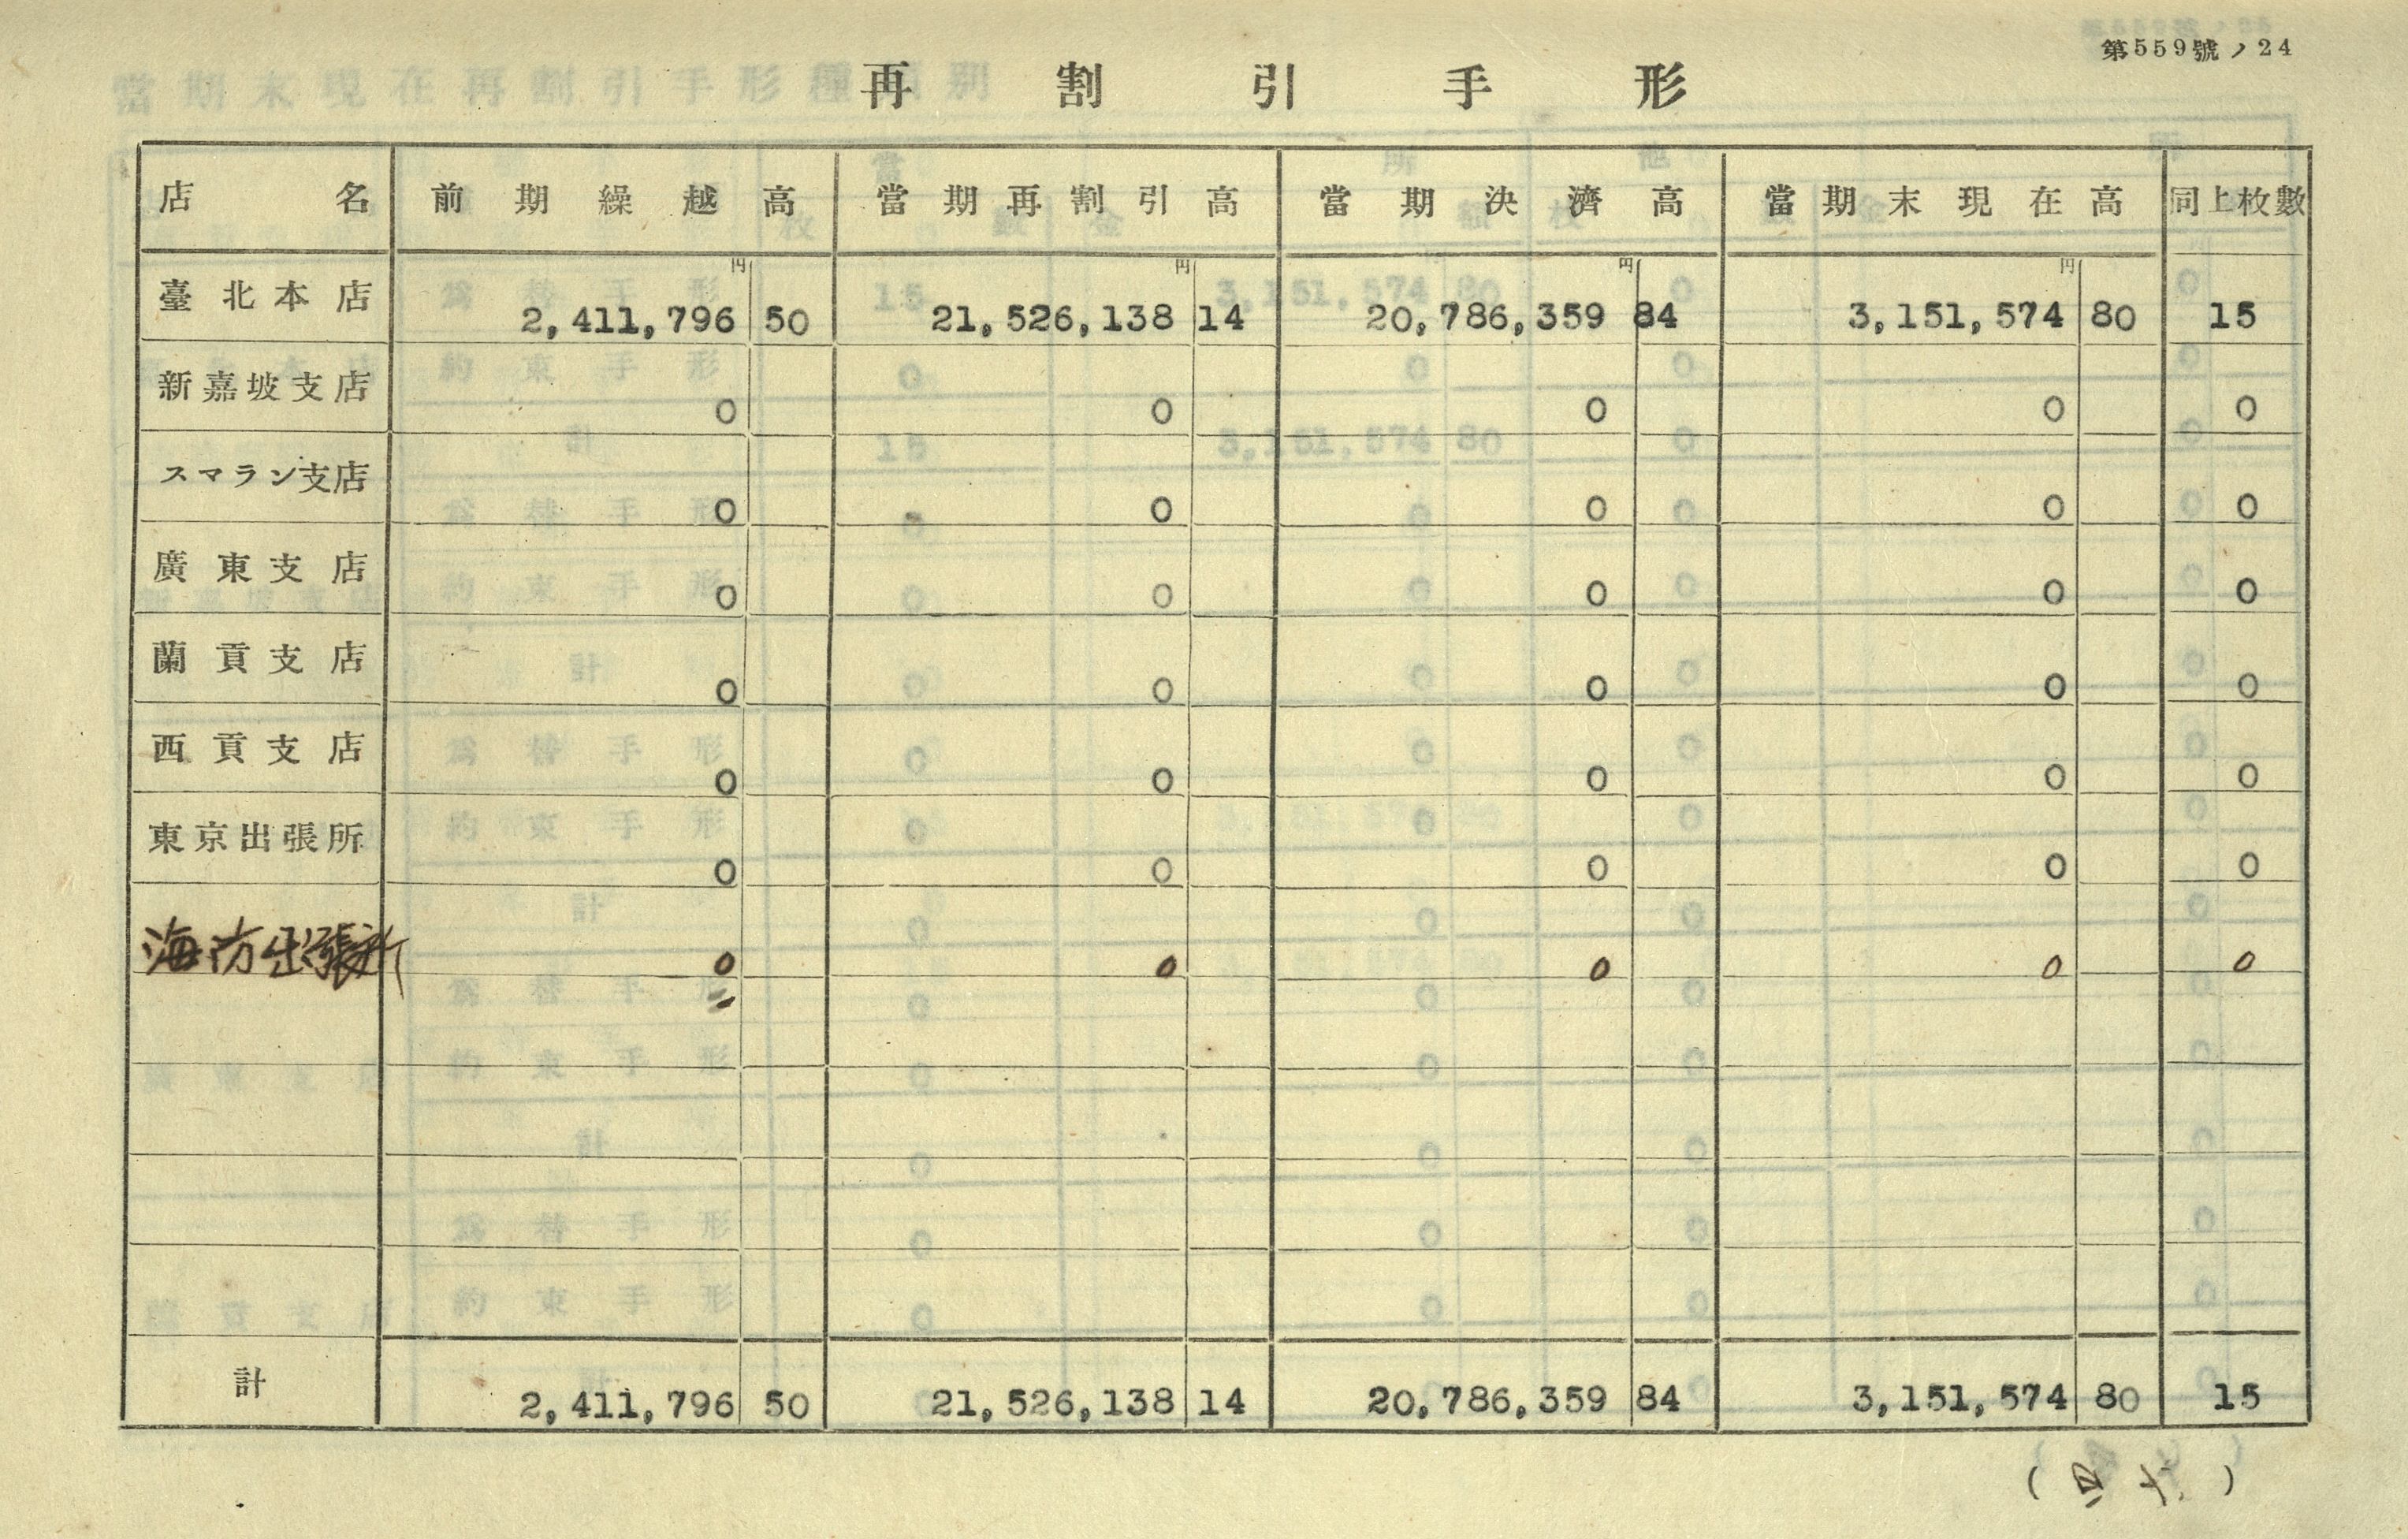 第559號ノ24
再割引手形
店名 前期繰越高 當期再割引高 當期決濟高 當期末現在高 同上枚數
円 円 円 円
臺北本店 2,411,796 50 21,526,138 14 20,786,359 84 3,151,574 80 15
新嘉坡支店 0 0 0 0 0
スマラン支店 0 0 0 0 0
廣東支店 0 0 0 0 0
蘭貢支店 0 0 0 0 0
西貢支店 0 0 0 0 0
東京出張所 0 0 0 0 0
海防出張所 0 0 0 0 0
計 2,411,796 50 21,526,138 14 20,786,359 84 3,151,574 80 15